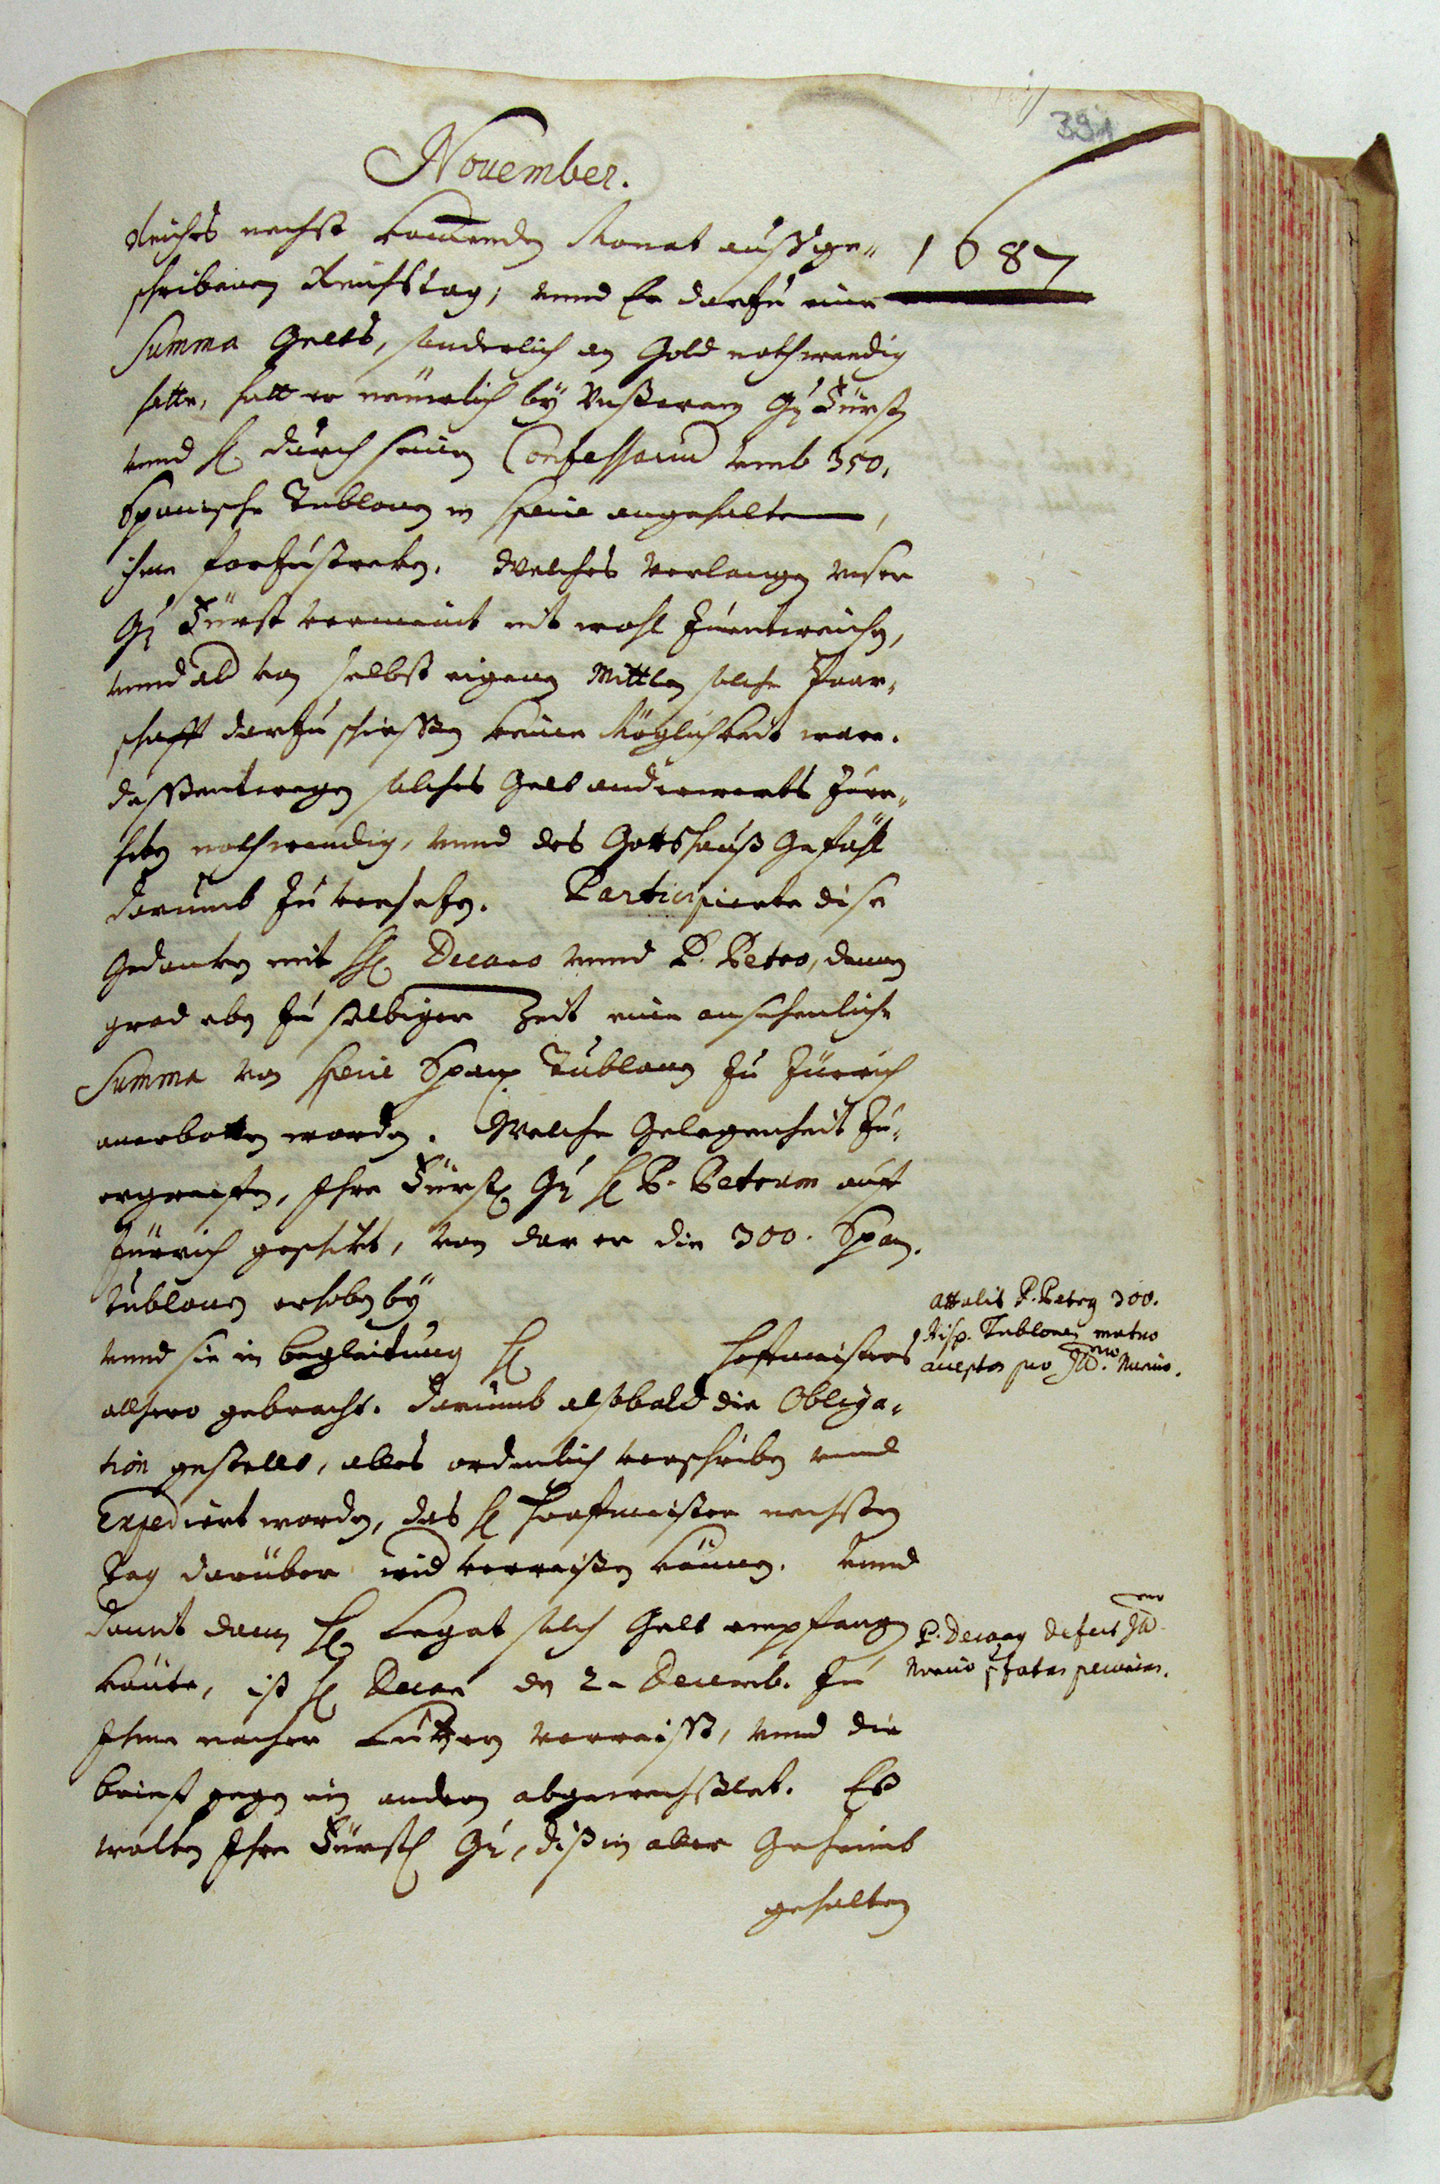 November.
391
1687
Reichs nechst komenden Monat aussge-
schribenen Reichstag, vnnd Er darzu eine
Summa Gelts, sonderlich an Gold nothwendig
hette, hatt er nämlich by Vnsserem Gn Fürst
vnnd H. durch seinen Confessarium vmb 350.
Spanische Dublonen in specie angehalten,
ihme forzustreken. Welches verlangen vnser
Gn Fürst vermeint nit wohl zuentweichen,
vnnd als von selbst eignen Mittlen solche Paar-
schafft darzu schiessen keine Möglichkeit ware.
dessentwegen solches Gelt anderwerts zuue-
hen nothwendig, vnnd des Gottshauss Gefähl
darumb zu versetzen. Participierte dise
Gedanken mit H. Decano vnnd P. Petro, denen
grad eben zu selbiger Zeit eine ansehenliche
Summa von specie Span. Dublonen zu Zürich
anerbotten worden. Welche Gelegenheit zu-
ergreiffen, Ihre Fürstl Gn H P. Petrum auff
Zürrich geschikt, von dar er die 300. Span.
Dublonen erhoben by
vnnd sie in begleitung H. Hoffmeisters
allhero gebracht. Darumb alsobald die Obliga-
tion gestellt, alles ordenlich verschriben vnd
Expediert worden, das H Hoffmeister nechsten
Tag darüber wid verreissen können. Vnnd
damit dann H. Legat solch Gelt empfangen
könte, ist H Decan den 2. Decemb. zu
Ihme nacher Lutzern verreisst, vnnd die
brieff gegen ein andern abgewechsslet. Es
wolten Ihre Fürstl Gn, diss in aller Geheimb
gehalten
Attulit P. Petrus 300.
Hisp. Dublonen mutuo
acceptas pro Illmo. Nuncio.
P. Decanus defert Illmo
Nuncio pfatas pecunias.